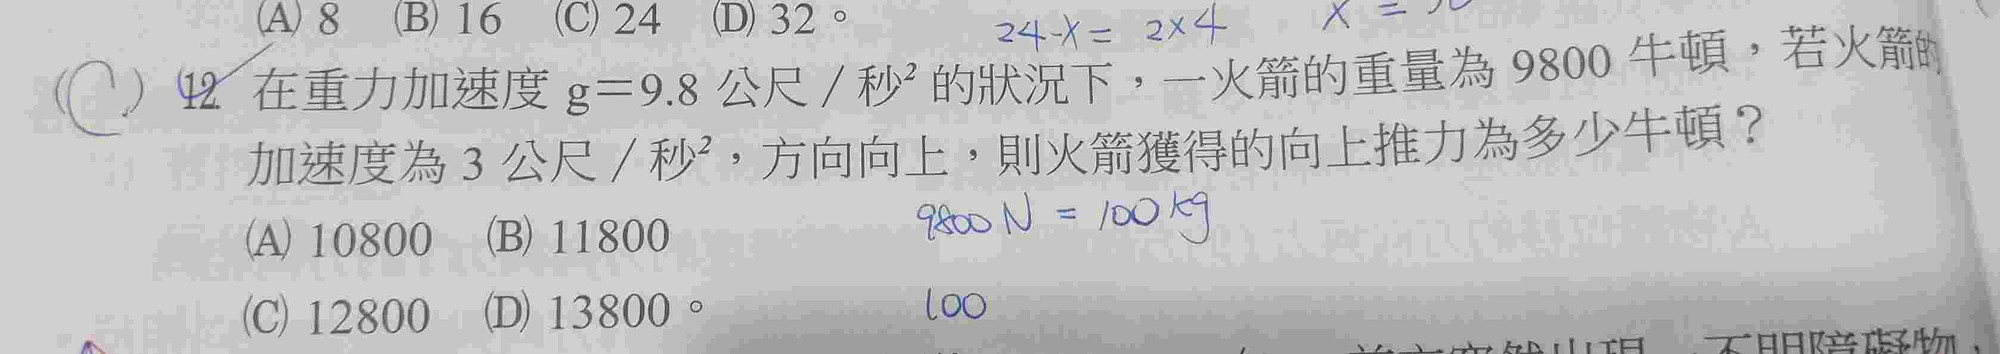 (A) 8 (B) 16 (C) 24 (D) 32。
24-x = 2×4 x =
(C) 12. 在重力加速度 g＝9.8 公尺／秒² 的狀況下，一火箭的重量為 9800 牛頓，若火箭的
加速度為 3 公尺／秒²，方向向上，則火箭獲得的向上推力為多少牛頓？
9800 N = 100 kg
(A) 10800 (B) 11800
(C) 12800 (D) 13800。
100